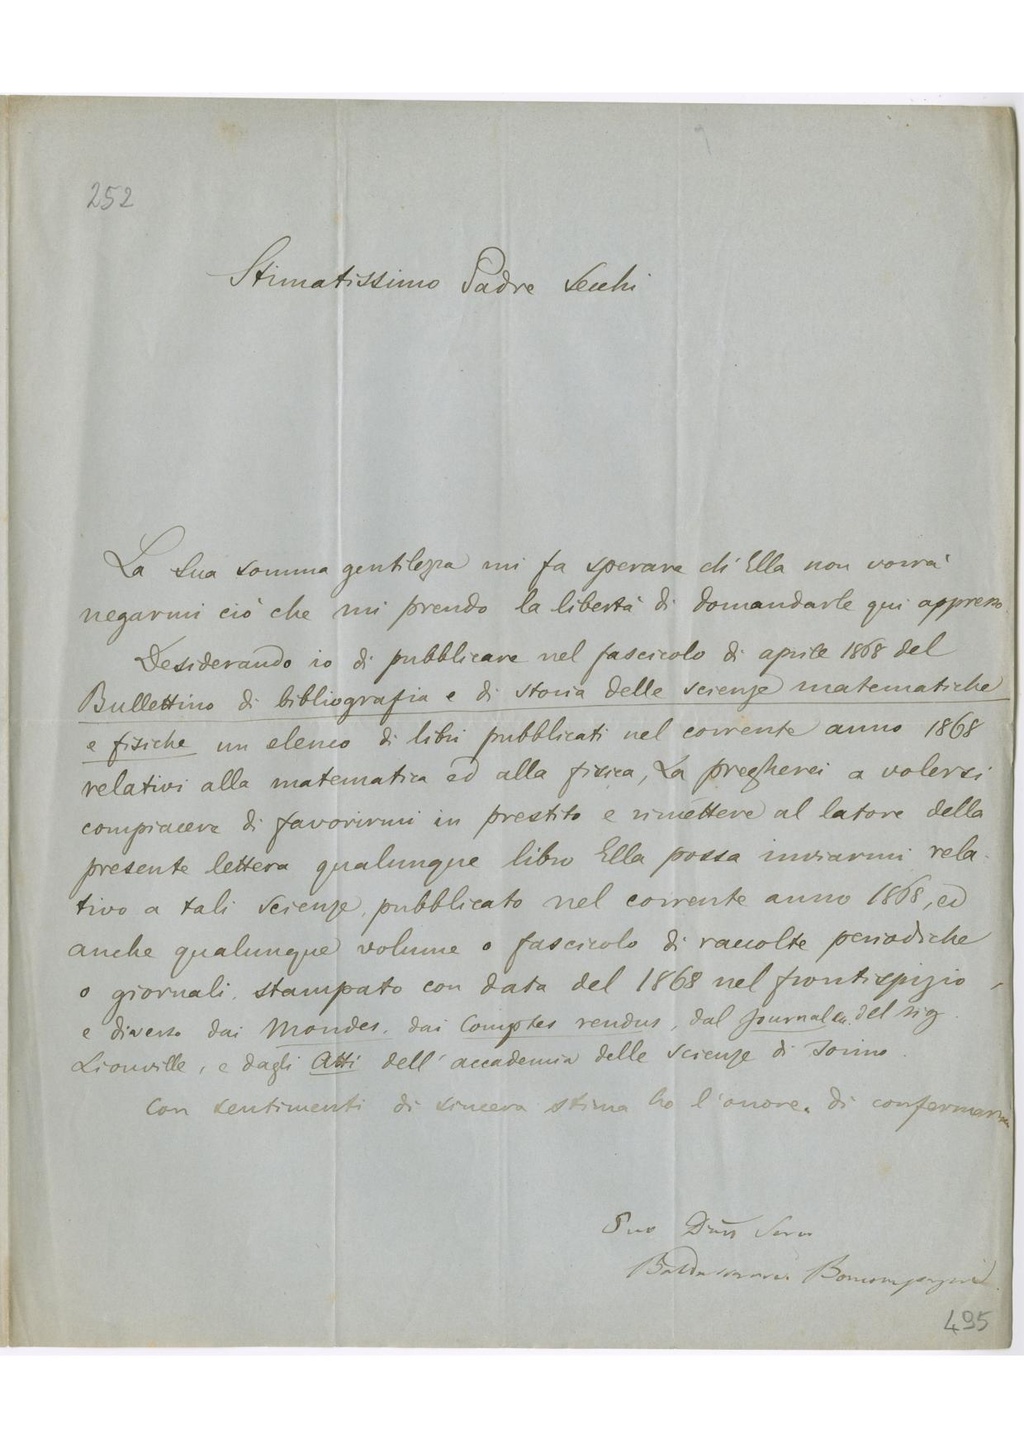 252
Stimatissimo Padre Secchi
La Sua somma gentilezza mi fa sperare ch' Ella non vorrà
negarmi ciò che mi prendo la libertà di domandarle qui appresso.
Desiderando io di pubblicare nel fascicolo di aprile 1868 del
Bullettino di bibliografia e di storia delle scienze matematiche
e fisiche un elenco di libri pubblicati nel corrente anno 1868
relativi alla matematica ed alla fisica, La pregherei a volersi
compiacere di favorirmi in prestito e rimettere al latore della
presente lettera qualunque libro Ella possa inviarmi rela-
tivo a tali scienze, pubblicato nel corrente anno 1868, ed
anche qualunque volume o fascicolo di raccolte periodiche
o giornali, stampato con data del 1868 nel frontispizio,
e diverso dai Mondes, dai Comptes rendus, dal Journal &. del sig.
Liouville, e dagli Atti dell' accademia delle scienze di Torino.
Con sentimenti di sincera stima ho l'onore di confermarmi
Suo Dev Servo
Baldassarre Boncompagni
495